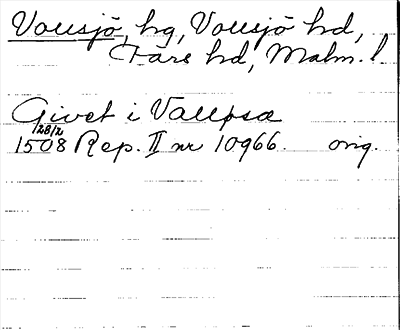 Vollsjö, hg, Vollsjö hd,
Färs hd, Malm. l
Givet i Valløsa
28/2
1508 Rep. II nr 10966. orig.